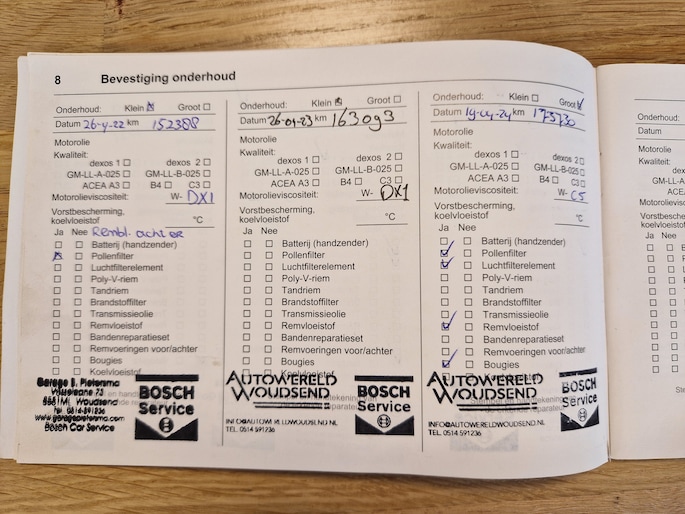 8 Bevestiging onderhoud
Onderhoud: Klein Groot
Datum 26-4-22 km 152388
Motorolie
Kwaliteit:
dexos 1 dexos 2
GM-LL-A-025 GM-LL-B-025
ACEA A3 B4 C3
Motorolieviscositeit: W- DX1
Vorstbescherming,
koelvloeistof °C
Ja Nee Rembl. achter
Batterij (handzender)
Pollenfilter
Luchtfilterelement
Poly-V-riem
Tandriem
Brandstoffilter
Transmissieolie
Remvloeistof
Bandenreparatieset
Remvoeringen voor/achter
Bougies
Koelvloeistof
Garage S. Pietersma
8551 Woudsend
Tel. 0514-591236
www.garagepietersma.com
Bosch Car Service
BOSCH
Service
Onderhoud: Klein Groot
Datum 26-04-23 km 163093
Motorolie
Kwaliteit:
dexos 1 dexos 2
GM-LL-A-025 GM-LL-B-025
ACEA A3 B4 C3
Motorolieviscositeit: W- DX1
Vorstbescherming,
koelvloeistof °C
Ja Nee
Batterij (handzender)
Pollenfilter
Luchtfilterelement
Poly-V-riem
Tandriem
Brandstoffilter
Transmissieolie
Remvloeistof
Bandenreparatieset
Remvoeringen voor/achter
Bougies
Koelvloeistof
AUTOWERELD
WOUDSEND
INFO@AUTOWERELDWOUDSEND.NL
TEL. 0514 591236
BOSCH
Service
Onderhoud: Klein Groot
Datum 19-04-24 km 173730
Motorolie
Kwaliteit:
dexos 1 dexos 2
GM-LL-A-025 GM-LL-B-025
ACEA A3 B4 C3
Motorolieviscositeit: W- C5
Vorstbescherming,
koelvloeistof °C
Ja Nee
Batterij (handzender)
Pollenfilter
Luchtfilterelement
Poly-V-riem
Tandriem
Brandstoffilter
Transmissieolie
Remvloeistof
Bandenreparatieset
Remvoeringen voor/achter
Bougies
AUTOWERELD
WOUDSEND
INFO@AUTOWERELDWOUDSEND.NL
TEL. 0514 591236
BOSCH
Service
Onderhoud:
Datum
Motorolie
Kwaliteit:
GM-LL-A
ACEA
Motorolieviscos
Vorstbescherm
koelvloeistof
Ja Nee